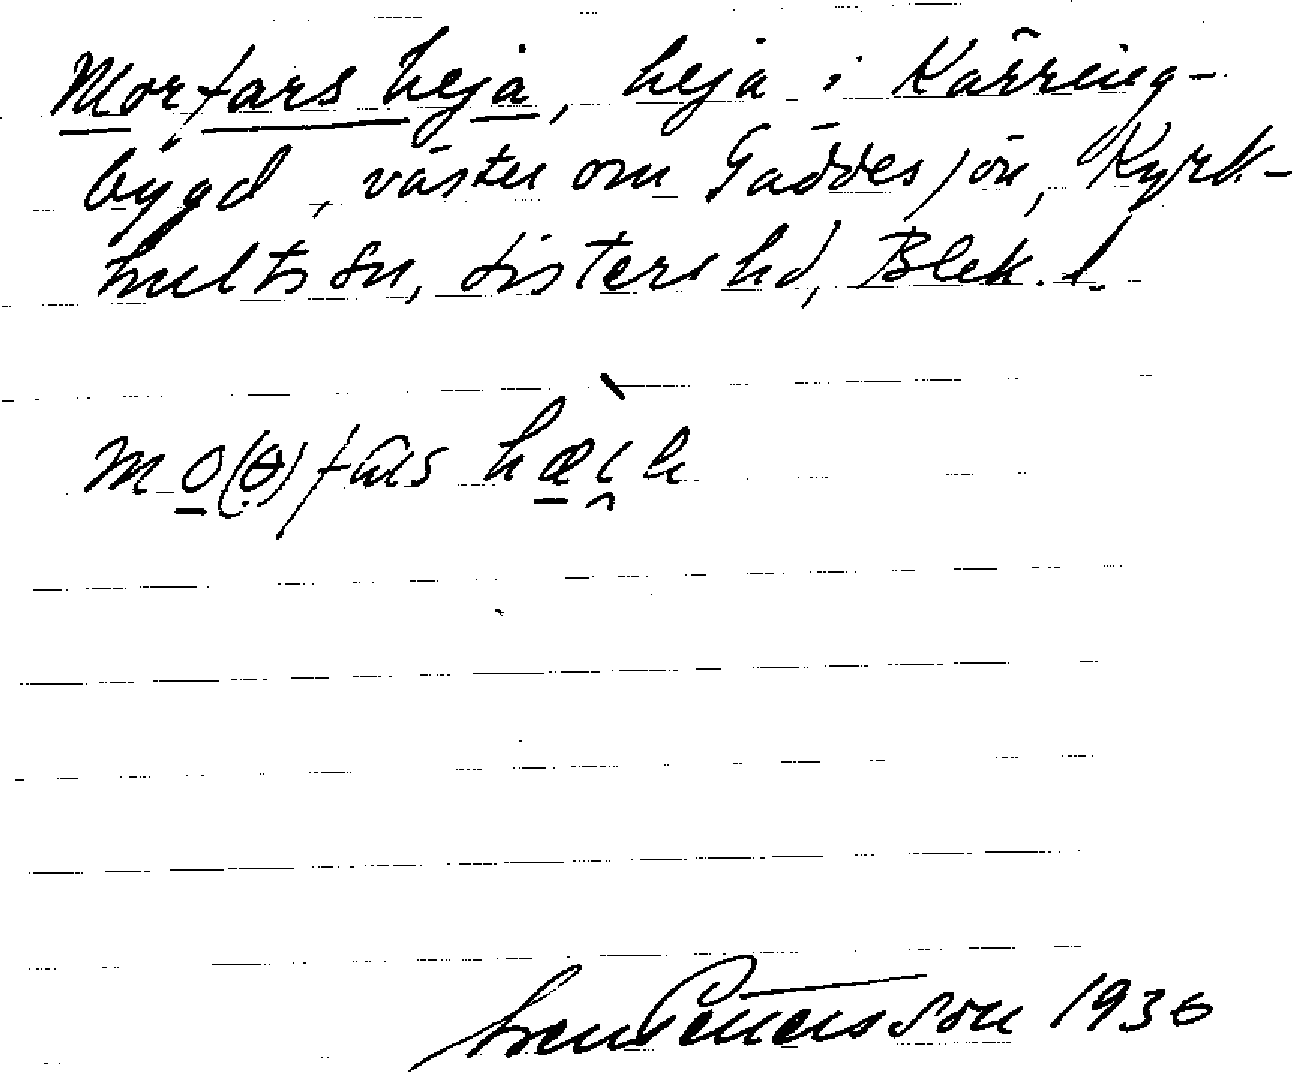 Morfars heja, heja i Kärring-
bygd, väster om Gäddesjön, Kyrk-
hults sn, Listers hd, Blek. l.
mo(ɵ)fas hæi̯a
Pettersson 1936